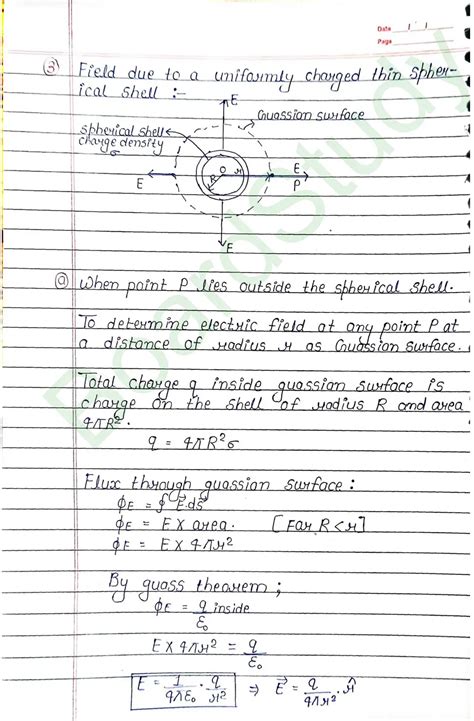 Date 1 1
Page
(3) Field due to a uniformly charged thin spher-
ical shell :-
E
Guassion surface
spherical shell
charge density
σ
O r
R
E
E
P
E
(a) When point P lies outside the spherical shell.
To determine electric field at any point P at
a distance of radius r as Guassion surface.
Total charge q inside guassion surface is
charge on the shell of radius R and area
4πR².
q = 4πR²σ
Flux through guassion surface :
ϕE = ∮ E⃗.ds⃗
ϕE = E × area. [Far R < r]
ϕE = E × 4πr²
By guass theorem ;
ϕE = q inside / ε₀
E × 4πr² = q / ε₀
E = 1/4πε₀ . q/r² ⇒ E⃗ = q/4πr² . r̂
BoardStudy